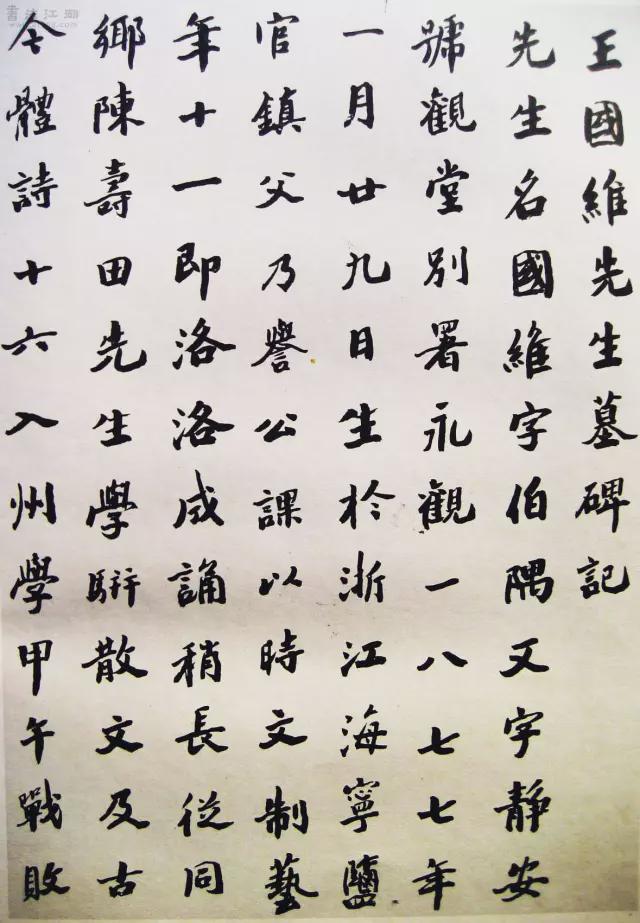 書法江湖
王國維先生墓碑記
先生名國維字伯隅又字靜安
號觀堂別署永觀一八七七年
一月廿九日生於浙江海寧鹽
官鎮父乃譽公課以時文制藝
年十一即洛洛成誦稍長從同
鄉陳壽田先生學駢散文及古
今體詩十六入州學甲午戰敗